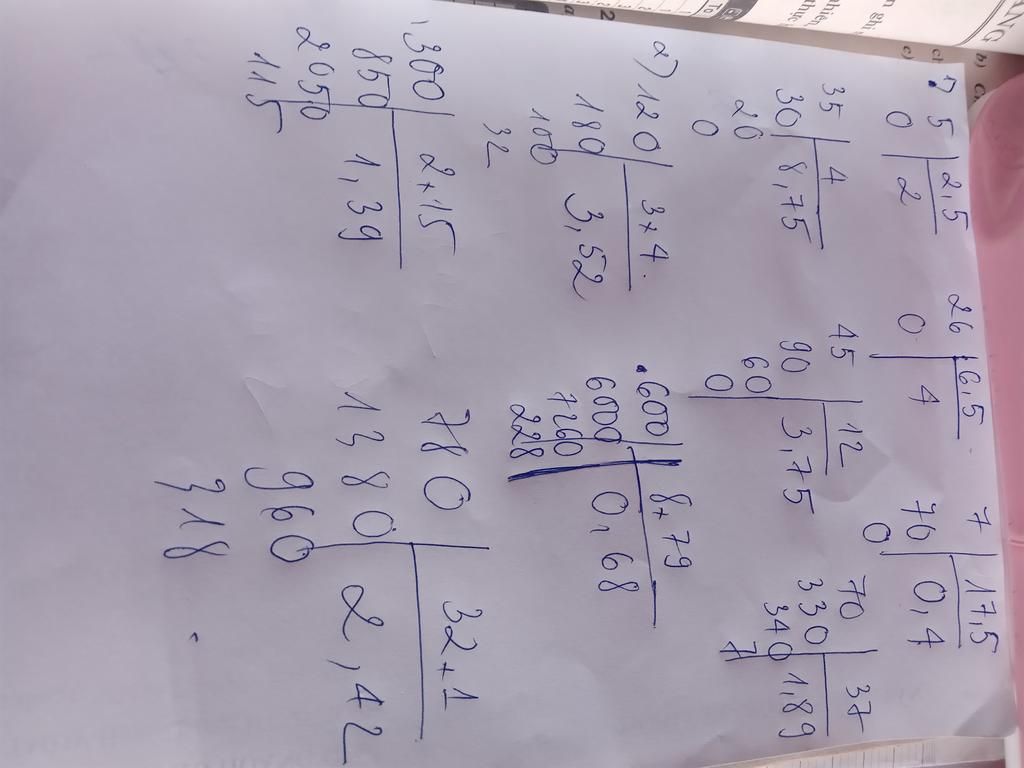 5 2,5
0 2
26 6,5
0 4
7 17,5
70 0,4
0
35 4
30 8,75
20
0
45 12
90 3,75
60
0
70 37
330 1,89
340
7
a) 120 3,4
180 3,52
100
32
600 8,79
6000 0,68
7260
228
300 2,15
850 1,39
2050
115
780 32,1
1380 2,42
960
318